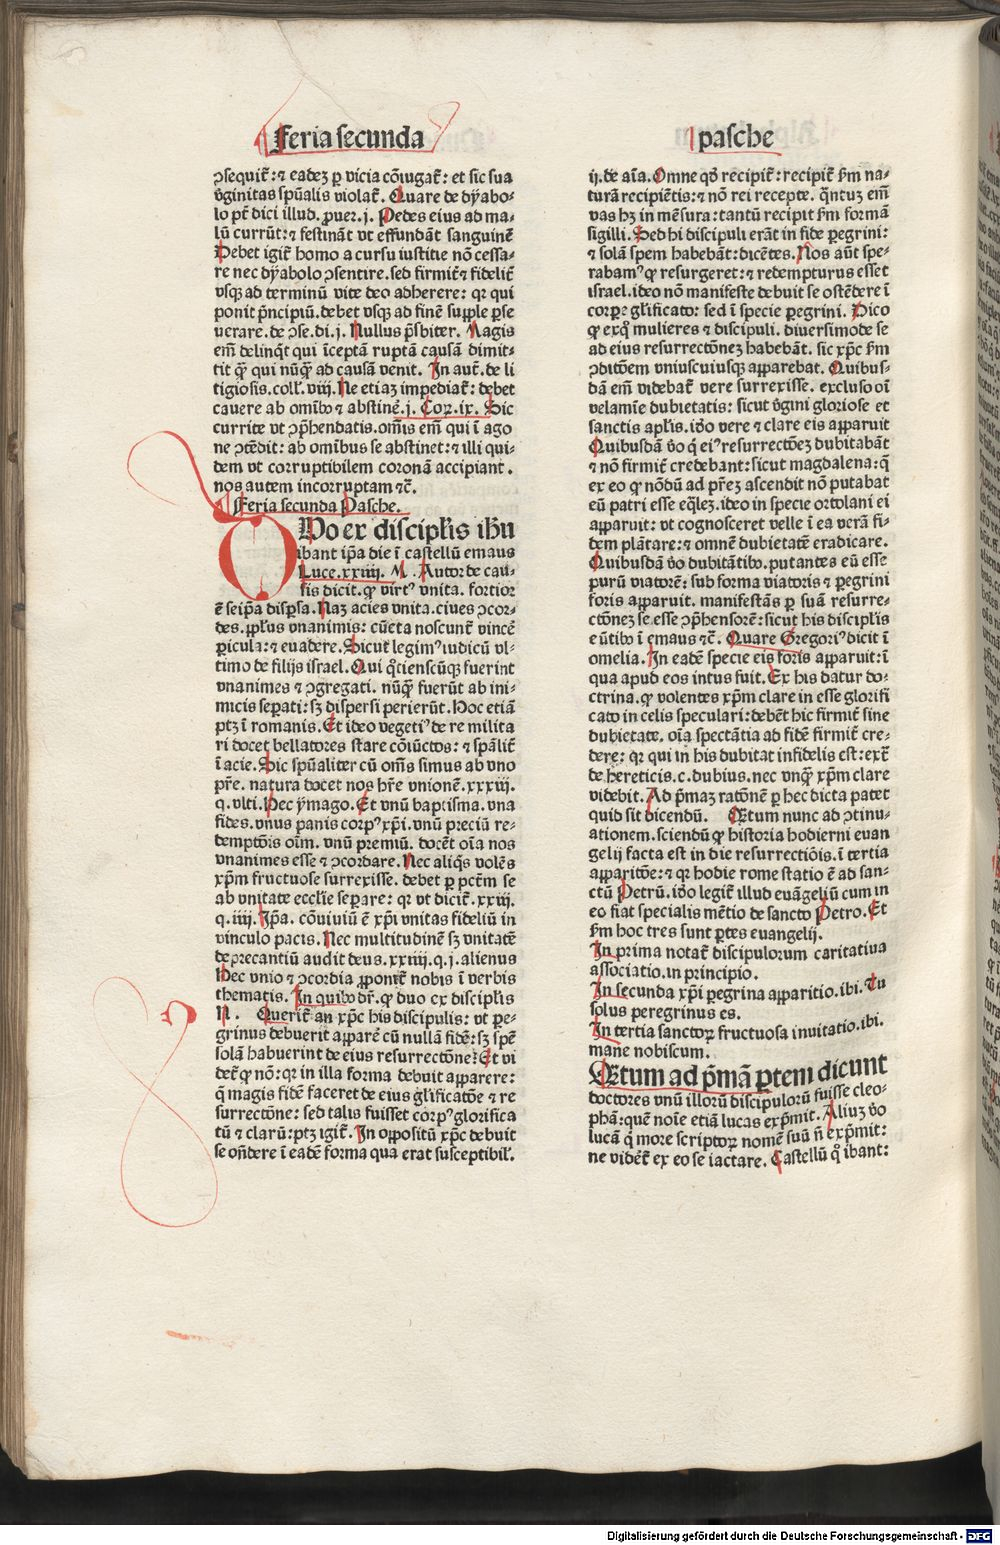 Feria secunda
pasche
ꝯsequit᷑: ⁊ eadeꝫ ꝑ vicia cōiugat᷑: et sic sua
v̄ginitas spūalis violat᷑. Quare de dyabo⸗
lo pt̄ dici illud. ꝓuer. j. Pedes eius ad ma⸗
lū currūt: ⁊ festināt vt effundāt sanguinē
Debet igit᷑ homo a cursu iustitie nō cessa⸗
re nec dyabolo ꝯsentire. sed firmit᷑ ⁊ fidelit᷑
vsqꝫ ad terminū vite deo adherere: qꝛ qui
ponit pn̄cipiū. debet vsqꝫ ad finē supple ꝑse
uerare. de ꝯse. di. j. Nullus p̄sbiter. Magis
em̄ delinq̄t qui īceptā ruptā causā dimit⸗
tit q̄ꝫ qui nūq̄ꝫ ad causā venit. In aut̄. de li
tigiosis. coll'. viij. Ne etiaꝫ impediat᷑: debet
cauere ab omībꝰ ⁊ abstinē. j. Coꝛ. ix. Sic
currite vt ꝯp̄hendatis. om̄is em̄ qui ī ago
ne ꝯtēdit: ab omībus se abstinet: ⁊ illi qui⸗
dem vt corruptibilem coronā accipiant.
nos autem incorruptam ⁊c̄.
Feria secunda Pasche.
DUo ex discipl'is ih̄u
ibant ip̄a die ī castellū emaus
Luce. xxiiij. M. Autor de cau⸗
sis dicit. ꝙ virtꝰ vnita. fortior
ē seip̄a disꝑsa. Naꝫ acies vnita. ciues ꝯcor⸗
des. ppl'us vnanimis: cūcta noscunt᷑ vincē
ꝑicula: ⁊ euadere. Sicut legimꝰ iudicū vl⸗
timo de filijs israel. Qui q̄tienscūqꝫ fuerint
vnanimes ⁊ ꝯgregati. nūq̄ꝫ fuerūt ab ini⸗
micis seꝑati: sꝫ dispersi perierūt. Hoc etiā
ptꝫ ī romanis. Et ideo vegetiꝰ de re milita
ri docet bellatores stare cōiūctos: ⁊ spālit᷑
ī acie. Sic spūaliter cū om̄s simus ab vno
pr̄e. natura docet nos hr̄e vnionē. xxxiij.
q. vlti. Hec ymago. Et vnū baptisma. vna
fides. vnus panis corpꝰ xp̄i. vnū preciū re⸗
demptōis oīm. vnū premiū. docēt oīa nos
vnanimes esse ⁊ ꝯcordare. Nec aliq̄s volēs
xp̄m fructuose surrexisse. debet ꝑ pctm̄ se
ab vnitate eccl'ie seꝑare: qꝛ vt dicit᷑. xxiij.
q. iiij. Ip̄a. cōuiuiū ē xp̄i vnitas fideliū in
vinculo pacis. Nec multitudinē sꝫ vnitatē
deprecantiū audit deus. xxiiij. q. j. alienus
Hec vnio ⁊ ꝯcordia ꝓponit᷑ nobis ī verbis
thematis. In quibꝰ dr̄. ꝙ duo ex discipl'is
N. Querit᷑ an xp̄c his discipulis: vt ꝑe⸗
grinus debuerit apparē cū nullā fidē: sꝫ spē
solā habuerint de eius resurrectōne? Et vi
det᷑ ꝙ nō: qꝛ in illa forma debuit apparere:
q̄ magis fidē faceret de eius gl'ificatōe ⁊ re
surrectōne: sed talis fuisset corpꝰ glorifica
tū ⁊ clarū: ptꝫ igit᷑. In oppositū xp̄c debuit
se on̄dere ī eadē forma qua erat susceptibil'.
ij. de aīa. Omne qd̄ recipit᷑: recipit᷑ ẜm na⸗
turā recipiētis: ⁊ nō rei recepte. q̄ntūꝫ em̄
vas hꝫ in mēsura: tantū recipit ẜm formā
sigilli. Sed hi discipuli erāt in fide ꝑegrini:
⁊ solā spem habebāt: dicētes. Nos aūt spe⸗
rabamꝰ ꝙ resurgeret: ⁊ redempturus esset
israel. ideo nō manifeste debuit se ostēdere ī
corꝑe gl'ificato: sed ī specie ꝑegrini. Dico
ꝙ exq̄ mulieres ⁊ discipuli. diuersimode se
ad eius resurrectōneꝫ habebāt. sic xp̄c ẜm
ꝯditōem vniuscuiusqꝫ apparebat. Quibus⸗
dā em̄ videbat᷑ vere surrexisse. excluso oī
velamīe dubietatis: sicut v̄gini gloriose et
sanctis apl'is. iō vere ⁊ clare eis apparuit
Quibusdā v̄o q̄ eiꝰ resurrectōeꝫ dubitabāt
⁊ nō firmit᷑ credebant: sicut magdalena: q̄
ex eo ꝙ nōdū ad pr̄eꝫ ascendit nō putabat
eū patri esse eq̄leꝫ. ideo in specie ortolani ei
apparuit: vt cognosceret velle ī ea verā fi⸗
dem plātare: ⁊ omnē dubietatē eradicare.
Quibusdā v̄o dubitātibꝰ. putantes eū esse
purū viatorē: sub forma viatoris ⁊ ꝑegrini
foris apparuit. manifestās ꝑ suā resurre⸗
ctōneꝫ se esse ꝯp̄hensorē: sicut his discipl'is
eūtibꝰ ī emaus ⁊c̄. Quare Gregoriꝰ dicit ī
omelia. In eadē specie eis foris apparuit: ī
qua apud eos intus fuit. Ex his datur do⸗
ctrina. ꝙ volentes xp̄m clare in esse glorifi
cato in celis speculari: debēt hic firmit᷑ sine
dubietate. oīa spectātia ad fidē firmit᷑ cre⸗
dere: qꝛ qui in his dubitat infidelis est: ext᷑
de hereticis. c. dubius. nec vnq̄ꝫ xp̄m clare
videbit. Ad p̄maꝫ ratōnē ꝑ hec dicta patet
quid sit dicendū. QEtum nunc ad ꝯtinu⸗
ationem. sciendū ꝙ historia hodierni euan
gelij facta est in die resurrectiōis. ī tertia
apparitōe: ⁊ qꝛ hodie rome statio ē ad san⸗
ctū Petrū. iō legit᷑ illud euāgeliū cum in
eo fiat specialis mētio de sancto Petro. Et
ẜm hoc tres sunt ꝑtes euangelij.
In prima notat᷑ discipulorum caritatiua
associatio. in principio.
In secunda xp̄i ꝑegrina apparitio. ibi. Tu
solus peregrinus es.
In tertia sanctoꝝ fructuosa inuitatio. ibi.
mane nobiscum.
QEtum ad p̄mā ꝑtem dicunt
doctores vnū illorū discipulorū fuisse cleo⸗
phā: quē noīe etiā lucas exp̄mit. Aliuꝫ v̄o
lucā q̄ more scriptoꝝ nomē suū n̄ exp̄mit:
ne videret᷑ ex eo se iactare. Castellū q̊ ibant:
Digitalisierung gefördert durch die Deutsche Forschungsgemeinschaft - DFG